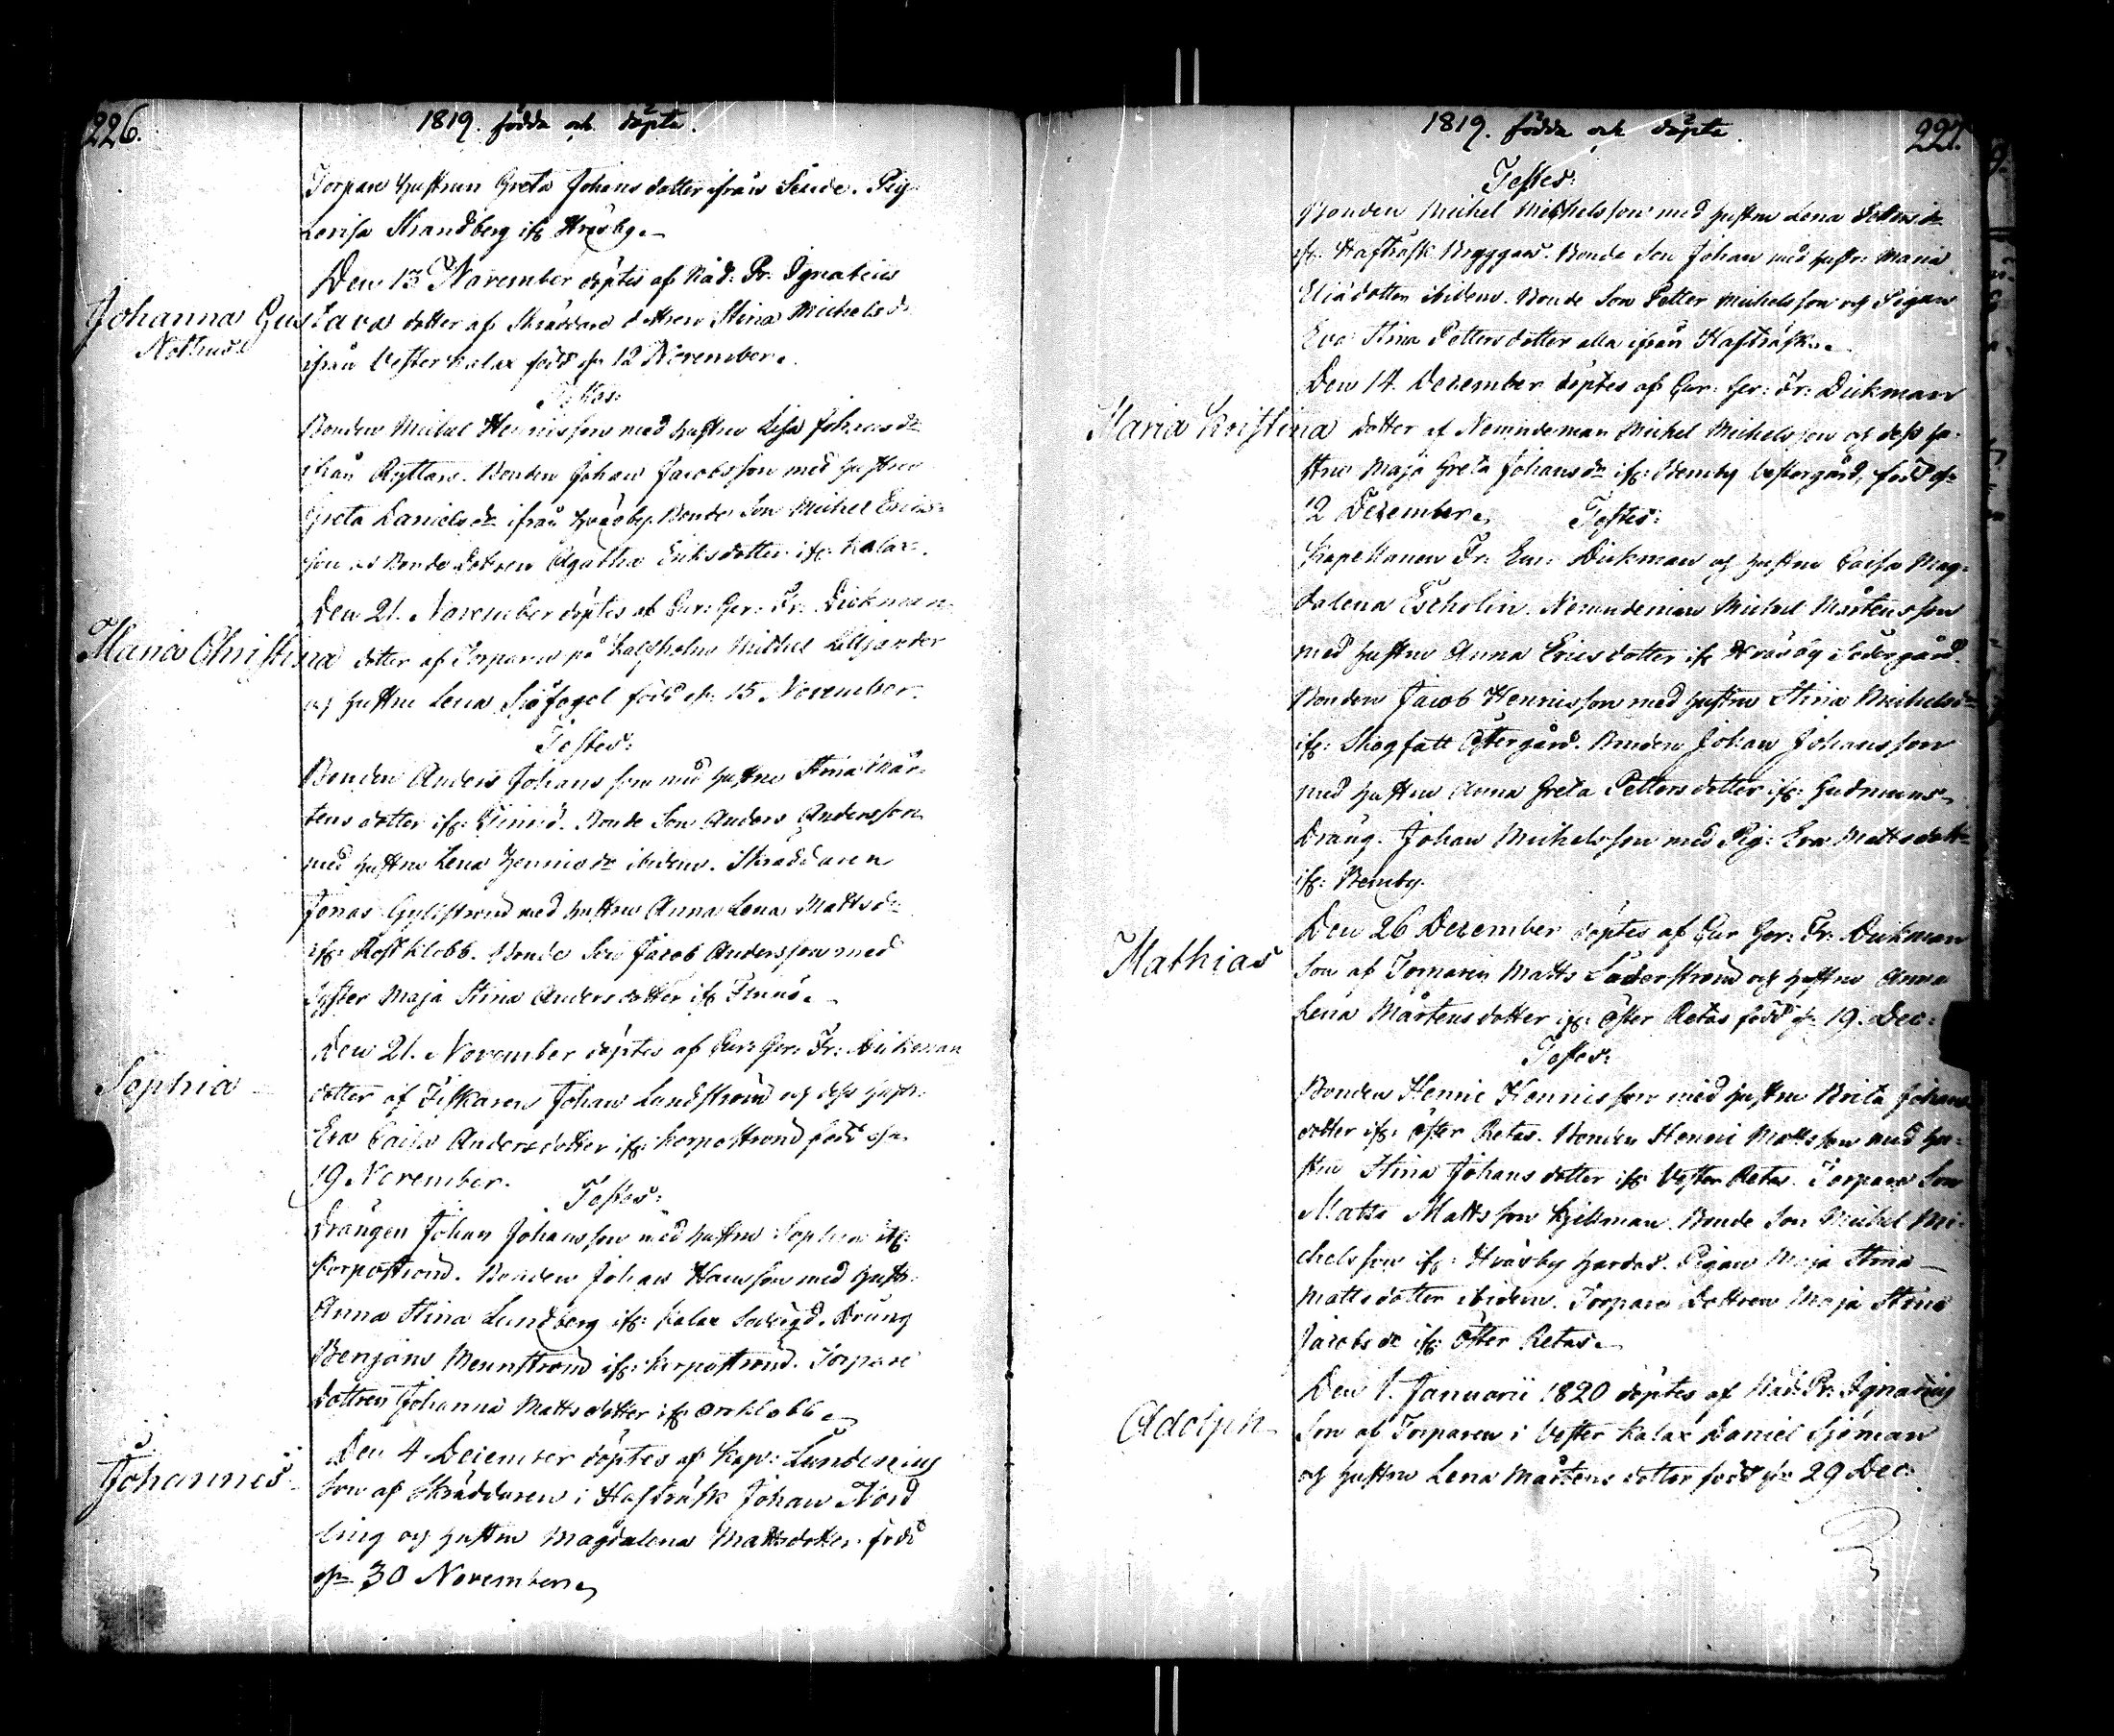 226.
1819. födde och döpte.
Torpare hustrun Greta Johansdotter ifrån Pig
Lovisa Strandberg ifr
Den 13 November döptes af Råd: Pr: Ignatius
Johanna Gustava dotter af Skräddare dottren Stina Michelsd:
Nothus
ifrån Vester Kalax född d: 12 November.
Testes:
Bonden Michel Hennisson med hustru Lisa Johansdr
ifrån Ryttars. Bonden Johan Jacobsson med hustru
Greta Danielsdr ifrån Bonde Son Michel Erics-
son Bonde dottren Agatha Eriksdotter ifr: Kalax.
Den 21. November döptes af Cur: Ger: Fr: Dickman
Maria Christina dotter af Torparen på Kalfholm Michel Liljander
och hustru Lena Sjöfogel född d: 15 November.
Testes:
Bonden Anders Johansson med hustru Stina Mår-
tensdotter ifr: Bonde Son Anders Andersson
med hustru Lena Hennisdr ibidem. Skräddaren
Jonas med hustru Anna Lena Mattsdr
ifr: Bonde Son Jacob Andersson med
Syster Maja Stina Andersdotter ifr
Den 21. November döptes af Cur: Ger: Fr: Dickman
Sophia
dotter af Fiskaren Johan Lundström och dess hust:
Eva Caisa Andersdotter ifr: Korpoström född d:
19 November.
Testes:
Drängen Johan Johansson med hustru Sophia ifr:
Korpoström. Bonden Johan Hansson med hustr:
Anna Stina Lundberg ifr: Kalax Dräng
Benjam: ifr: Korpoström. Torpare
dottren Johanna Mattsdotter ifr:
Den 4 December döptes af Kap: Lundenius
Johannes
Son af Skräddaren i Hafträsk Johan Nord
ling och hustru Magdalena Mattsdotter född
d: 30 November
1819. födde och döpte
227.
Testes:
Bonden Michel Michelsson med hustru Lena
ifr: Hafträsk Bryggars. Bonde Son Johan med hustr: Maria
Eliædotter ibidem. Bonde Son Petter Michelsson och Pigan
Eva Stina Pettersdotter alla ifrån Hafträsk.
Den 14. December döptes af Cur: Ger: Fr: Dickman
Maria Kristina dotter af Nemndeman Michel Michelsson och dess hu-
stru Maja Greta Johansdr ifr: Bemby Vestergård, född d:
12 December. Testes:
Kapellanen Fr: Em: Dickman och hustru Caisa Mag-
dalena Escholin. Nemndeman Michel Mårtensson
med hustru Anna Ericsdotter ifr Södergård.
Bonden Jacob Hennisson med hustru Stina Michelsdr
ifr: Östergård. Bonden Johan Johansson
med hustru Anna Greta Pettersdotter ifr: Gudmuns
Dräng. Johan Michelsson med Pig: Eva Mattsdott
ifr: Bemby.
Den 26 December döptes af Cur Ger: Fr: Dickman
Mathias
Son af Torparen Matts Söderström och hustru Anna
Lena Mårtensdotter ifr: Öster Retas född d: 19. Dec:
Testes:
Bonden Henric Hennisson med hustru Brita Johans
dotter ifr: Öster Retas. Bonden Henric Mattsson med hu-
stru Stina Johansdotter ifr: Vester Retas. Torpare Son
Matts Mattsson Kjellman. Bonde Son Michel Mi-
chelsson ifr: Pigan Maja Stina
Mattsdotter ibidem. Torpare dottren Maja Stina
Jacobsdr ifr: Öster Retas.
Den 1. Januarii 1820 döptes af Råd: Pr: Ignatius
Adolph
Son af Torparen i Vester Kalax Daniel Sjöman
och hustru Lena Mårtensdotter född d: 29 Dec: